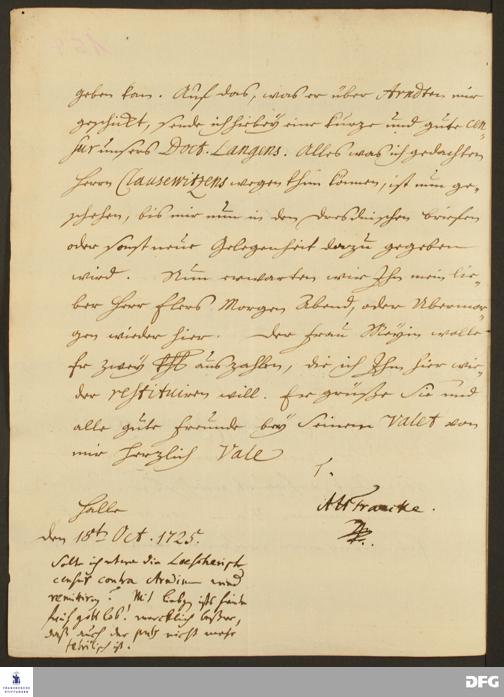 geben kan. Auf das, was er über Arndten mir
geschickt, sende ich hiebey eine kurze und gute Cen-
sur unsers Doct. Langens. Alles was ich gedachten
Herrn Clausewitzens wegen thun können, ist nun ge-
schehen, bis mir nun in den Dresdnischen briefen
oder sonst neue Gelegenheit dazu gegeben
wird. Nun erwarten wir Ihn mein lie-
ber Herr Elers Morgen Abend, oder Ubermor-
gen wieder hier. Der Frau Meyin wolle
Er zwey auszahlen, die ich Ihm hier wie-
der restituiren will. Er grüße Sie und
alle gute Freunde bey Seinem Valet von
mir herzlich Vale
Halle
AHFrancke.
den 18ten Oct. 1725.
Solt ich etwa die
censur contra Arndium
remittiren? Mit ists heute
früh gottlob! mercklich besser,
daß auch der puls nicht mehr
ist.
FRANCKESCHE
STIFTUNGEN
DFG